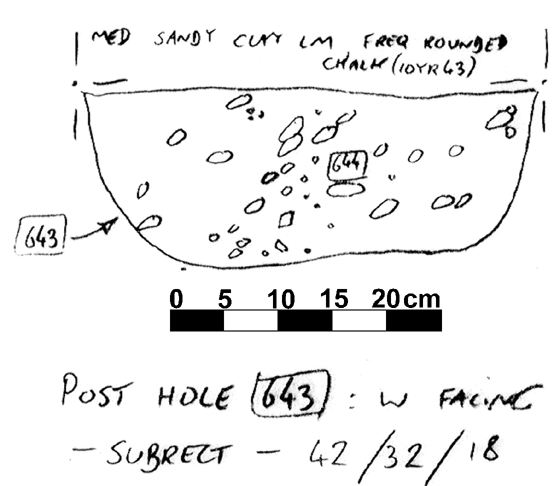 MED SANDY CLAY LM FREQ ROUNDED
CHALK (10YR43)
644
643
0 5 10 15 20cm
POST HOLE 643 : W FACING
- SUBRECT - 42/32/18